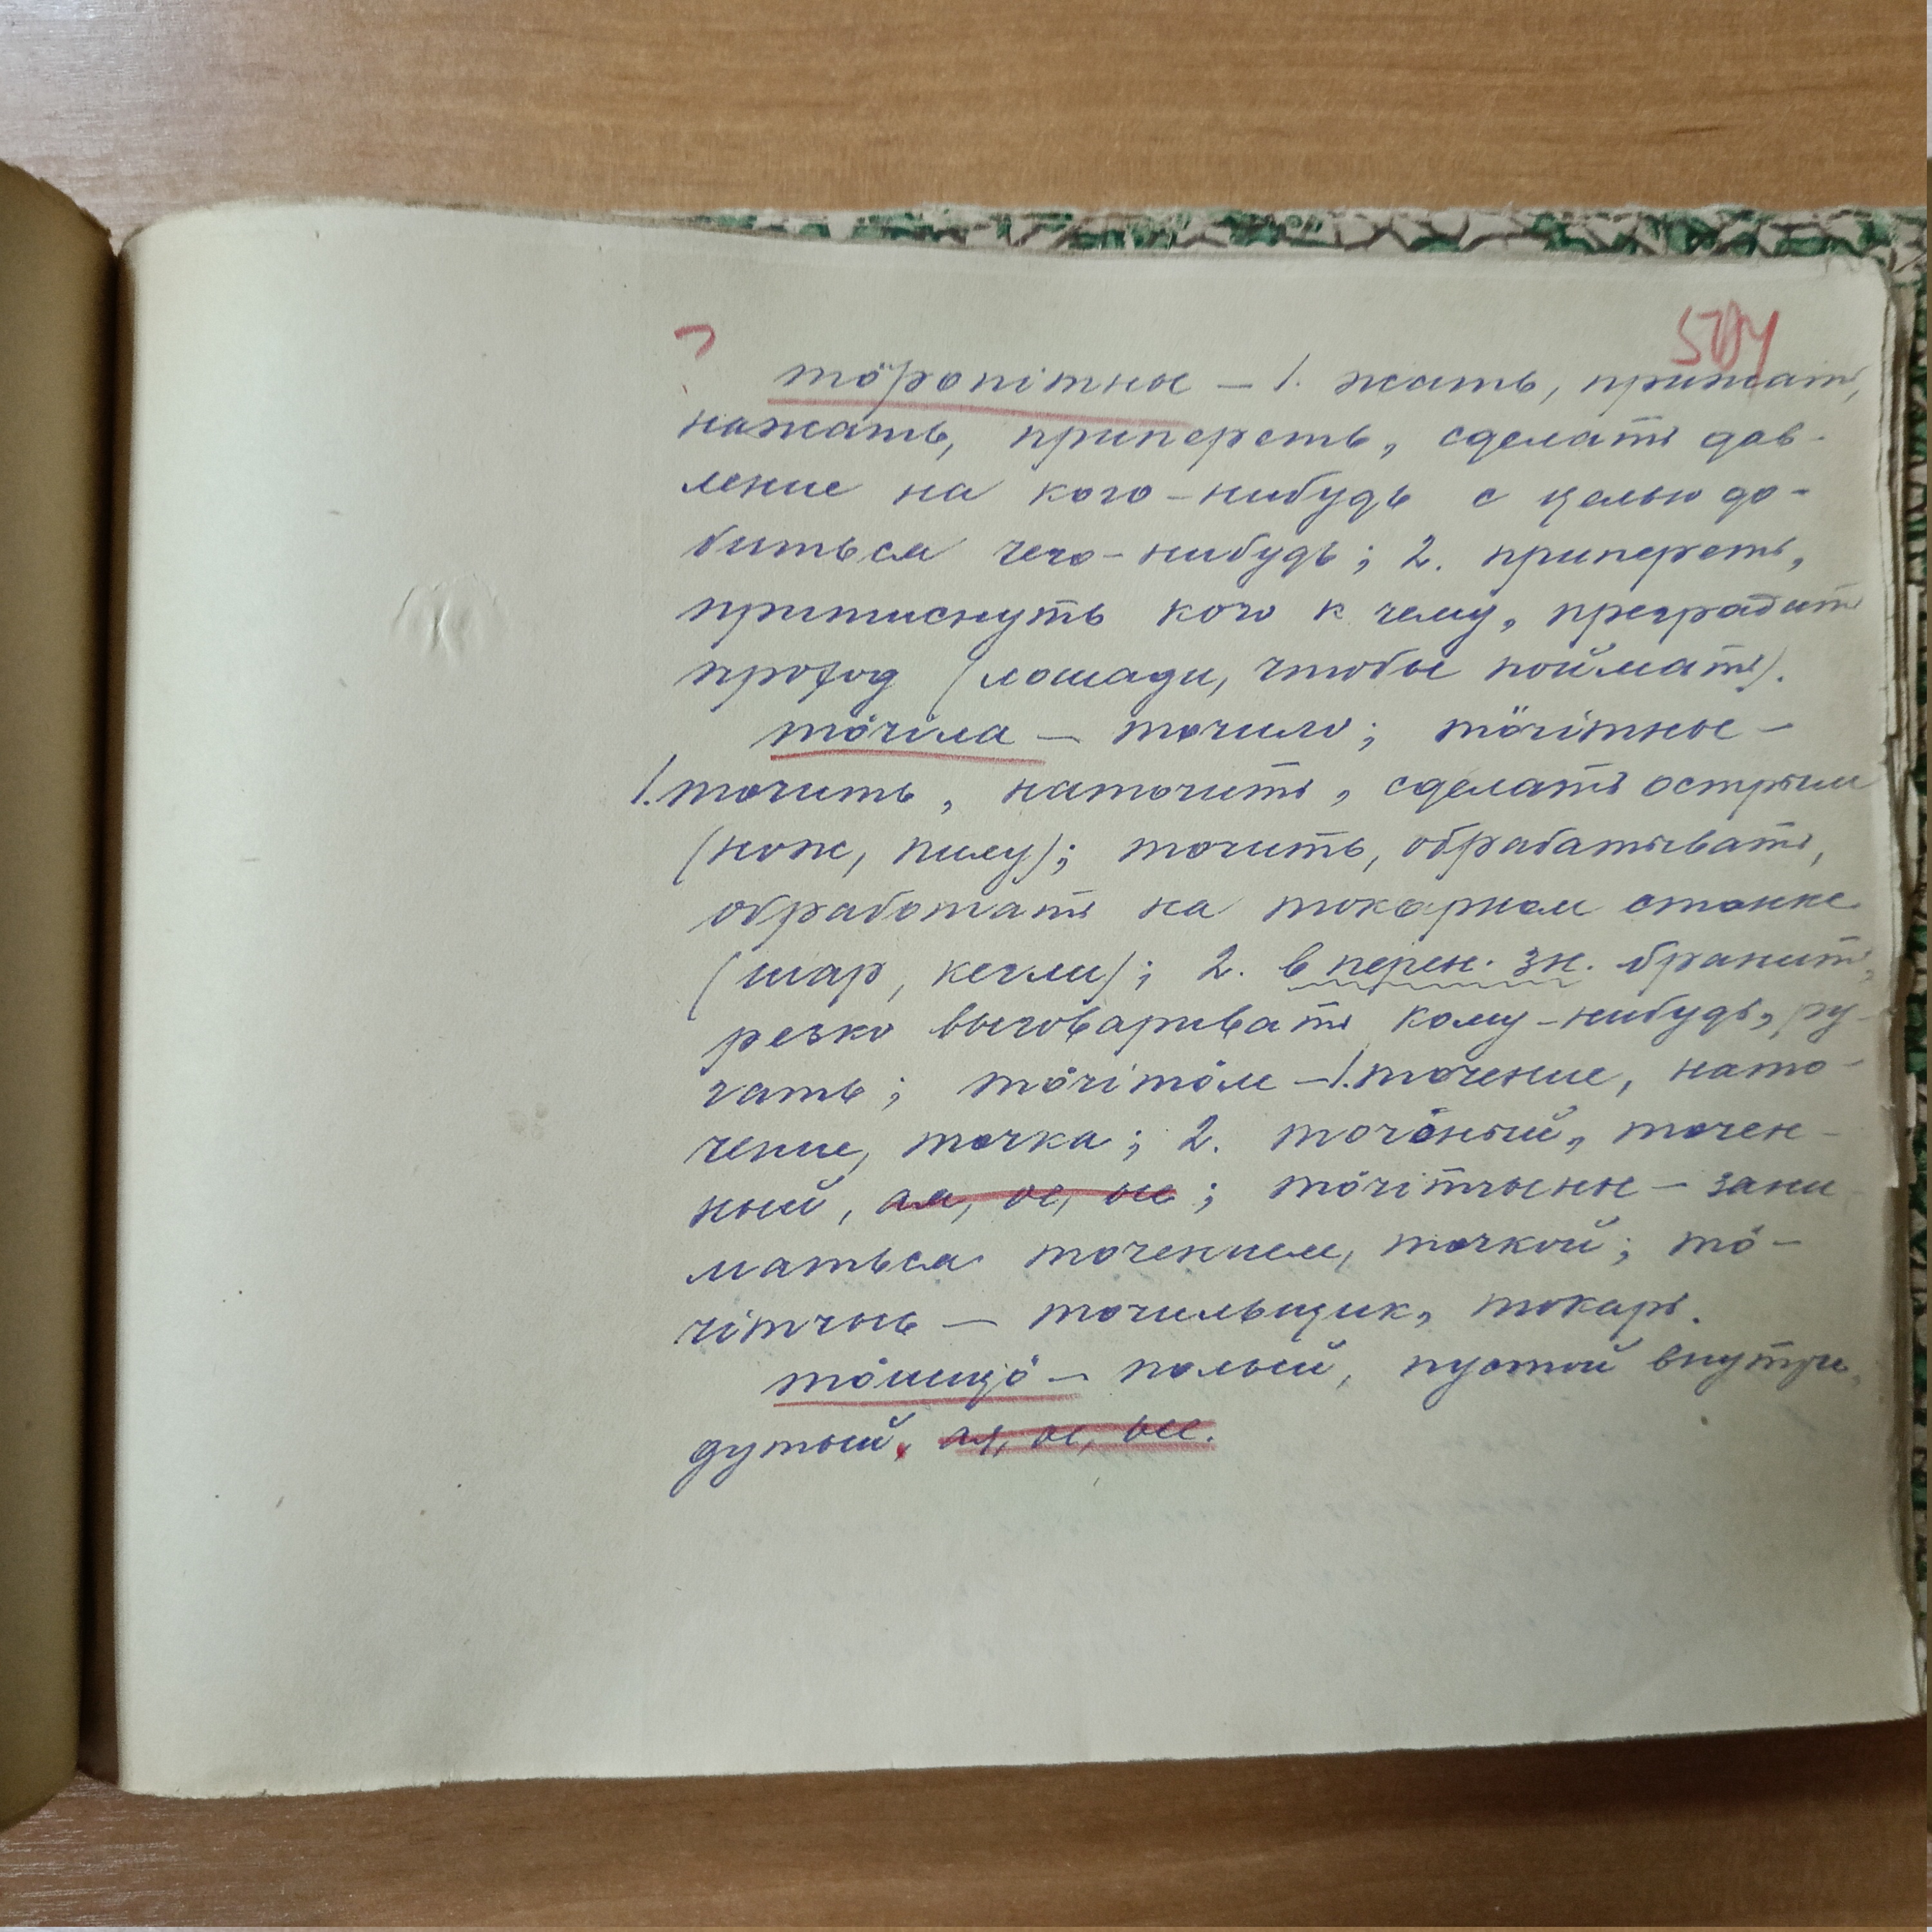 тöропiтны – 1. жать, прижать,
нажать, припереть, сделать дав-
ление на кого-нибудь с целью до-
биться чего-нибудь; 2. припереть,
притиснуть кого к чему, преградить
проход (лошади, чтобы поймать).
тöчiла – точило; тöчiтны –
1. точить, наточить, сделать острым
(нож, пилу); точить, обрабатывать,
обработать на токарном станке
(шар, кегли); 2. в перен. зн. бранить,
резко выговаривать кому-нибудь, ру-
гать; тöчiтöм – 1. точение, нато-
чение, точка; 2. точёный, точен-
ный, ая, ое, ые; тöчiтчыны – зани
маться точением, точкой; тö-
чiтчысь – точильщик, токарь.
полый, пустой внутри,
дутый, ая, ое, ые.